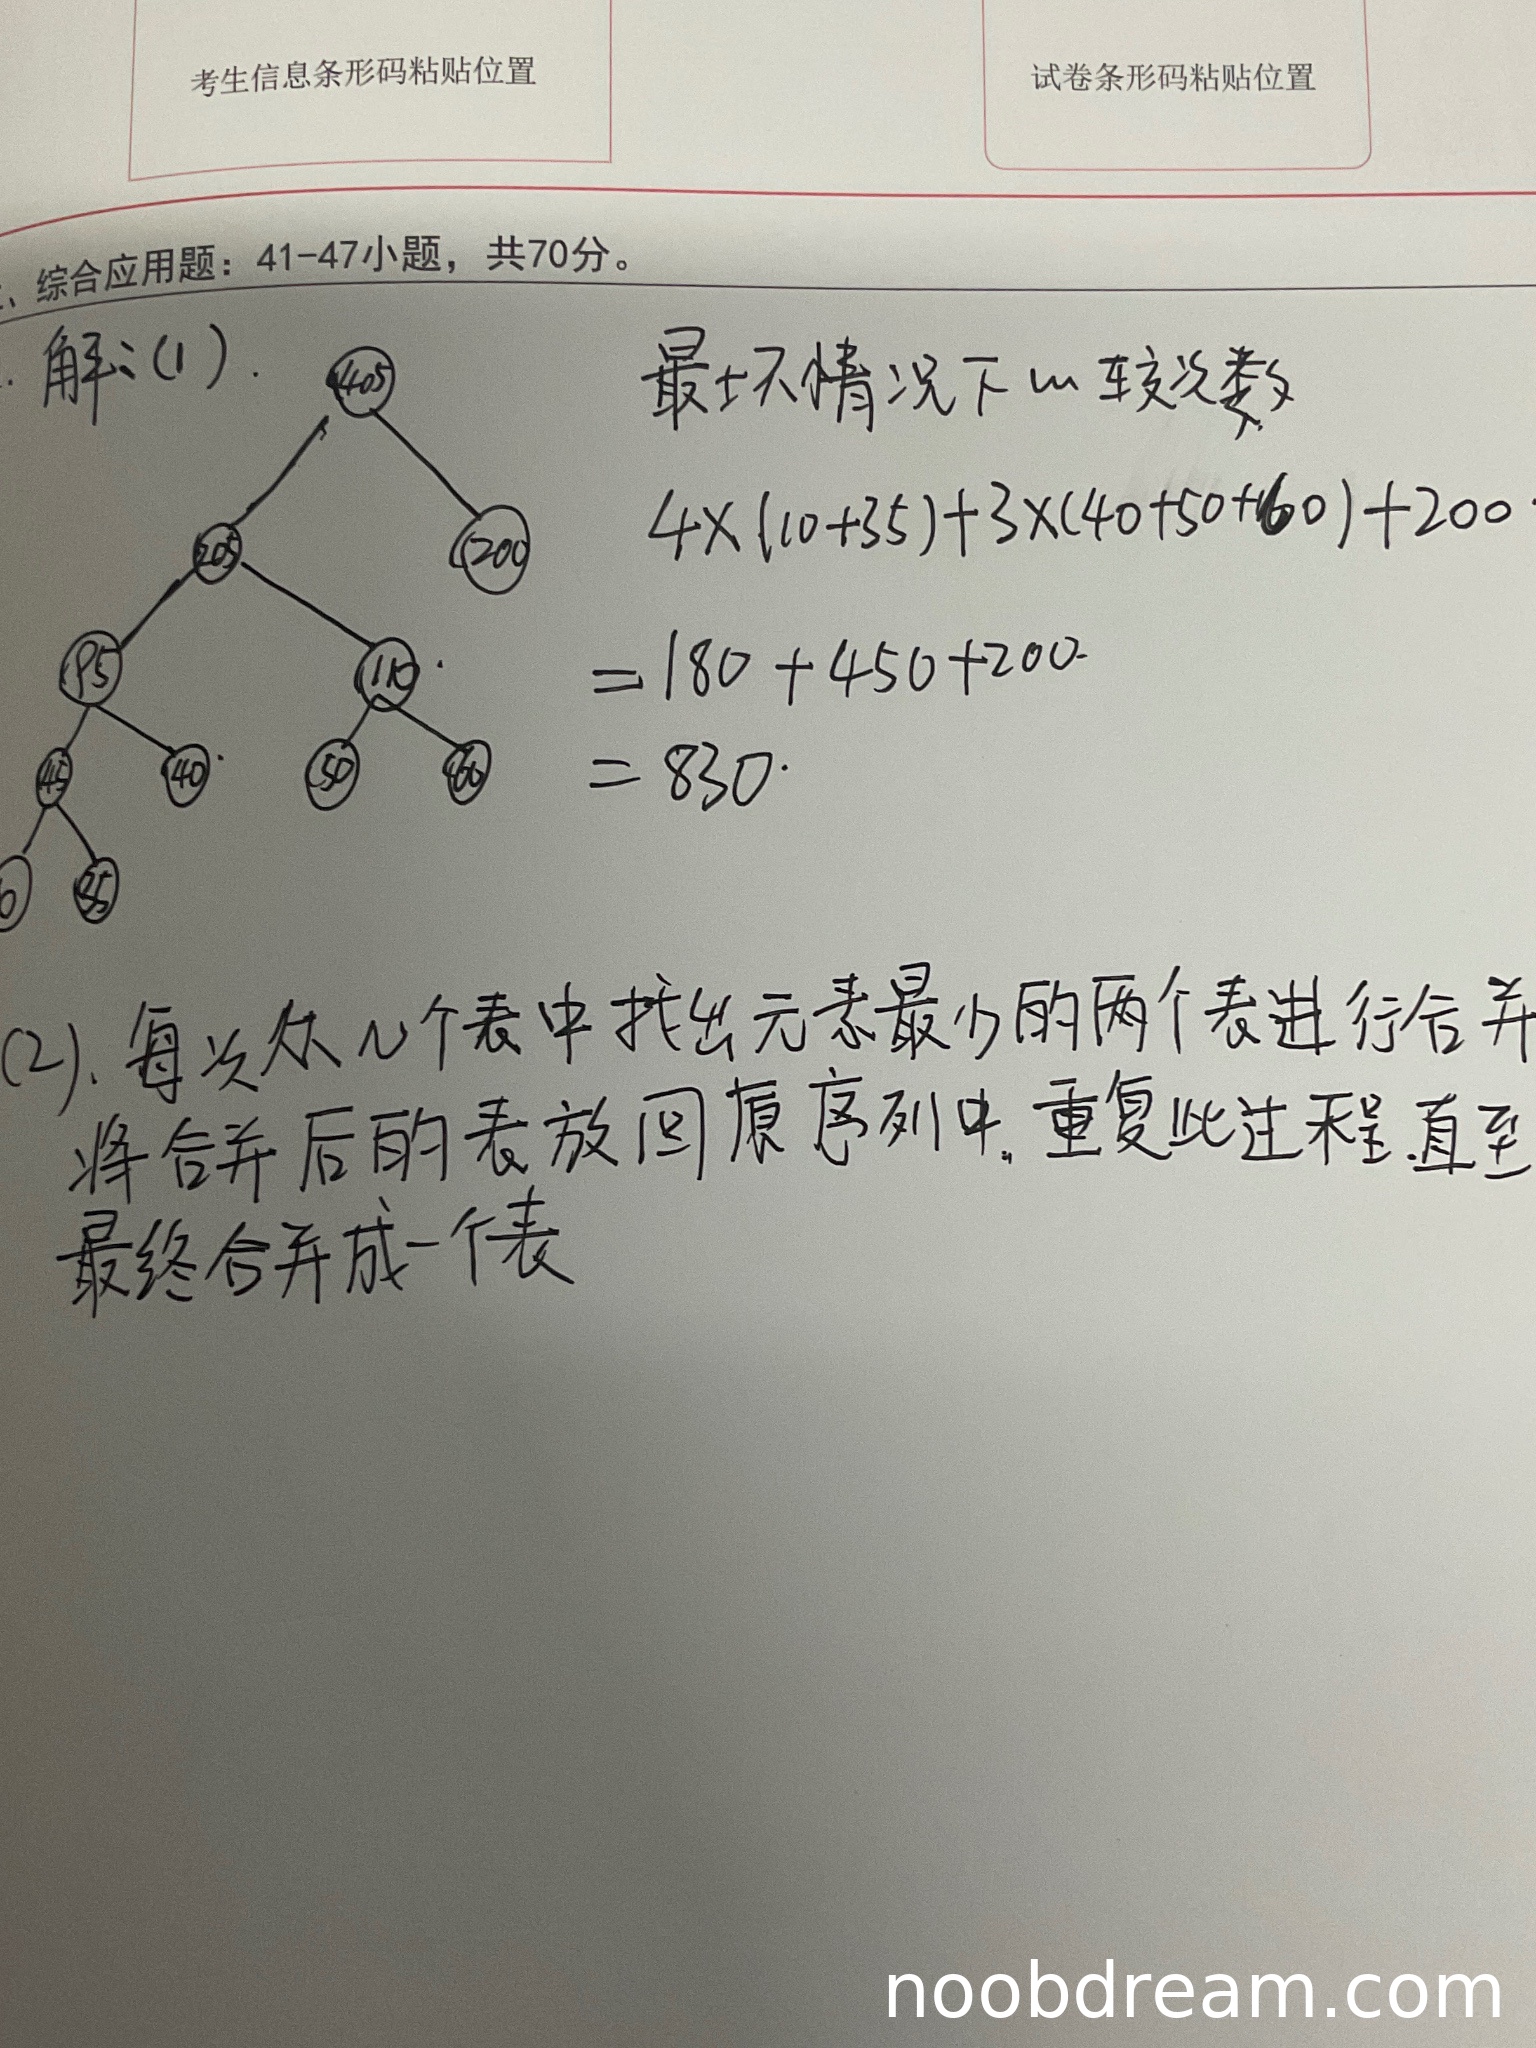 考生信息条形码粘贴位置
试卷条形码粘贴位置
、综合应用题：41-47小题，共70分。
. 解:(1).
405
205
200
95
110
45
40
50
60
35
最坏情况下 较次数
4×(10+35)+3×(40+50+60)+200
=180+450+200.
=830.
(2). 每次从N个表中找出元素最少的两个表进行合并
将合并后的表放回原序列中.重复此过程.直至
最终合并成一个表
noobdream.com